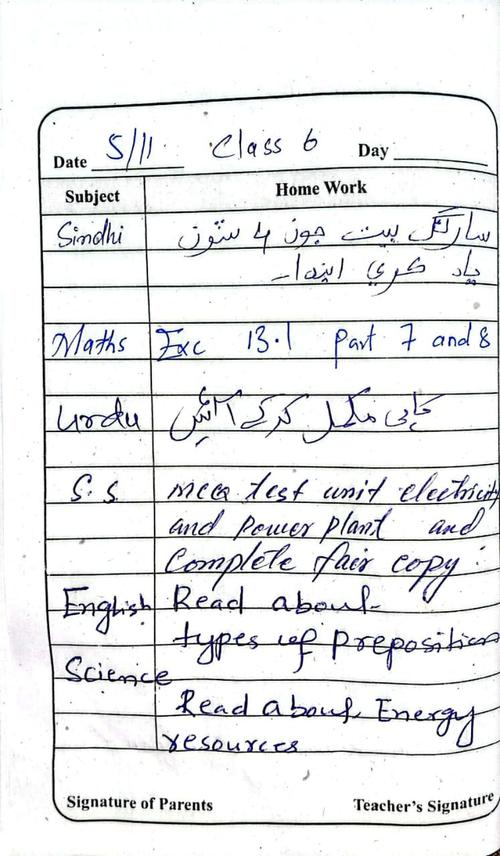 Date 5/11 Class 6 Day
Subject Home Work
Sindhi سارنگ بيت جون 4 سٽون
ياد ڪري ايندا۔
Maths Exc 13.1 part 7 and 8
Urdu کاپی مکمل کرکے آئیں
S.S MCQ test unit electricity
and power plant and
Complete fair copy.
English Read about
types of preposition
Science
Read about Energy
resources
Signature of Parents Teacher's Signature